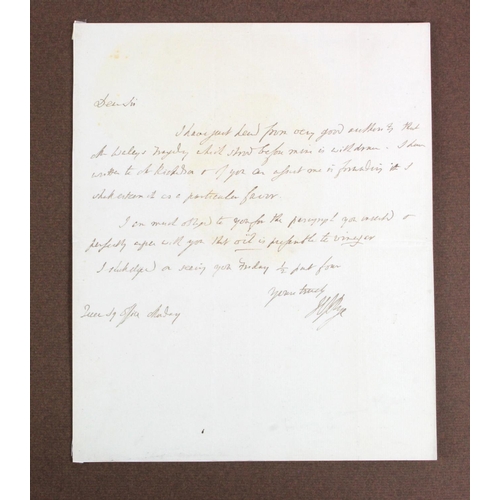 Dear Sir
I have just heard from very good authority that
Mr Daley's Tragedy which stood before mine is withdrawn - I have
written to Mr & if you can assist me in forwarding it I
shall esteem it as a particular favor
I am much obliged to you for the paragraph you inserted &
perfectly agree with you that oil is preferable to vinegar
I shall depend on seeing you Friday ½ past four
Yours truly
Queen Sq Office Monday